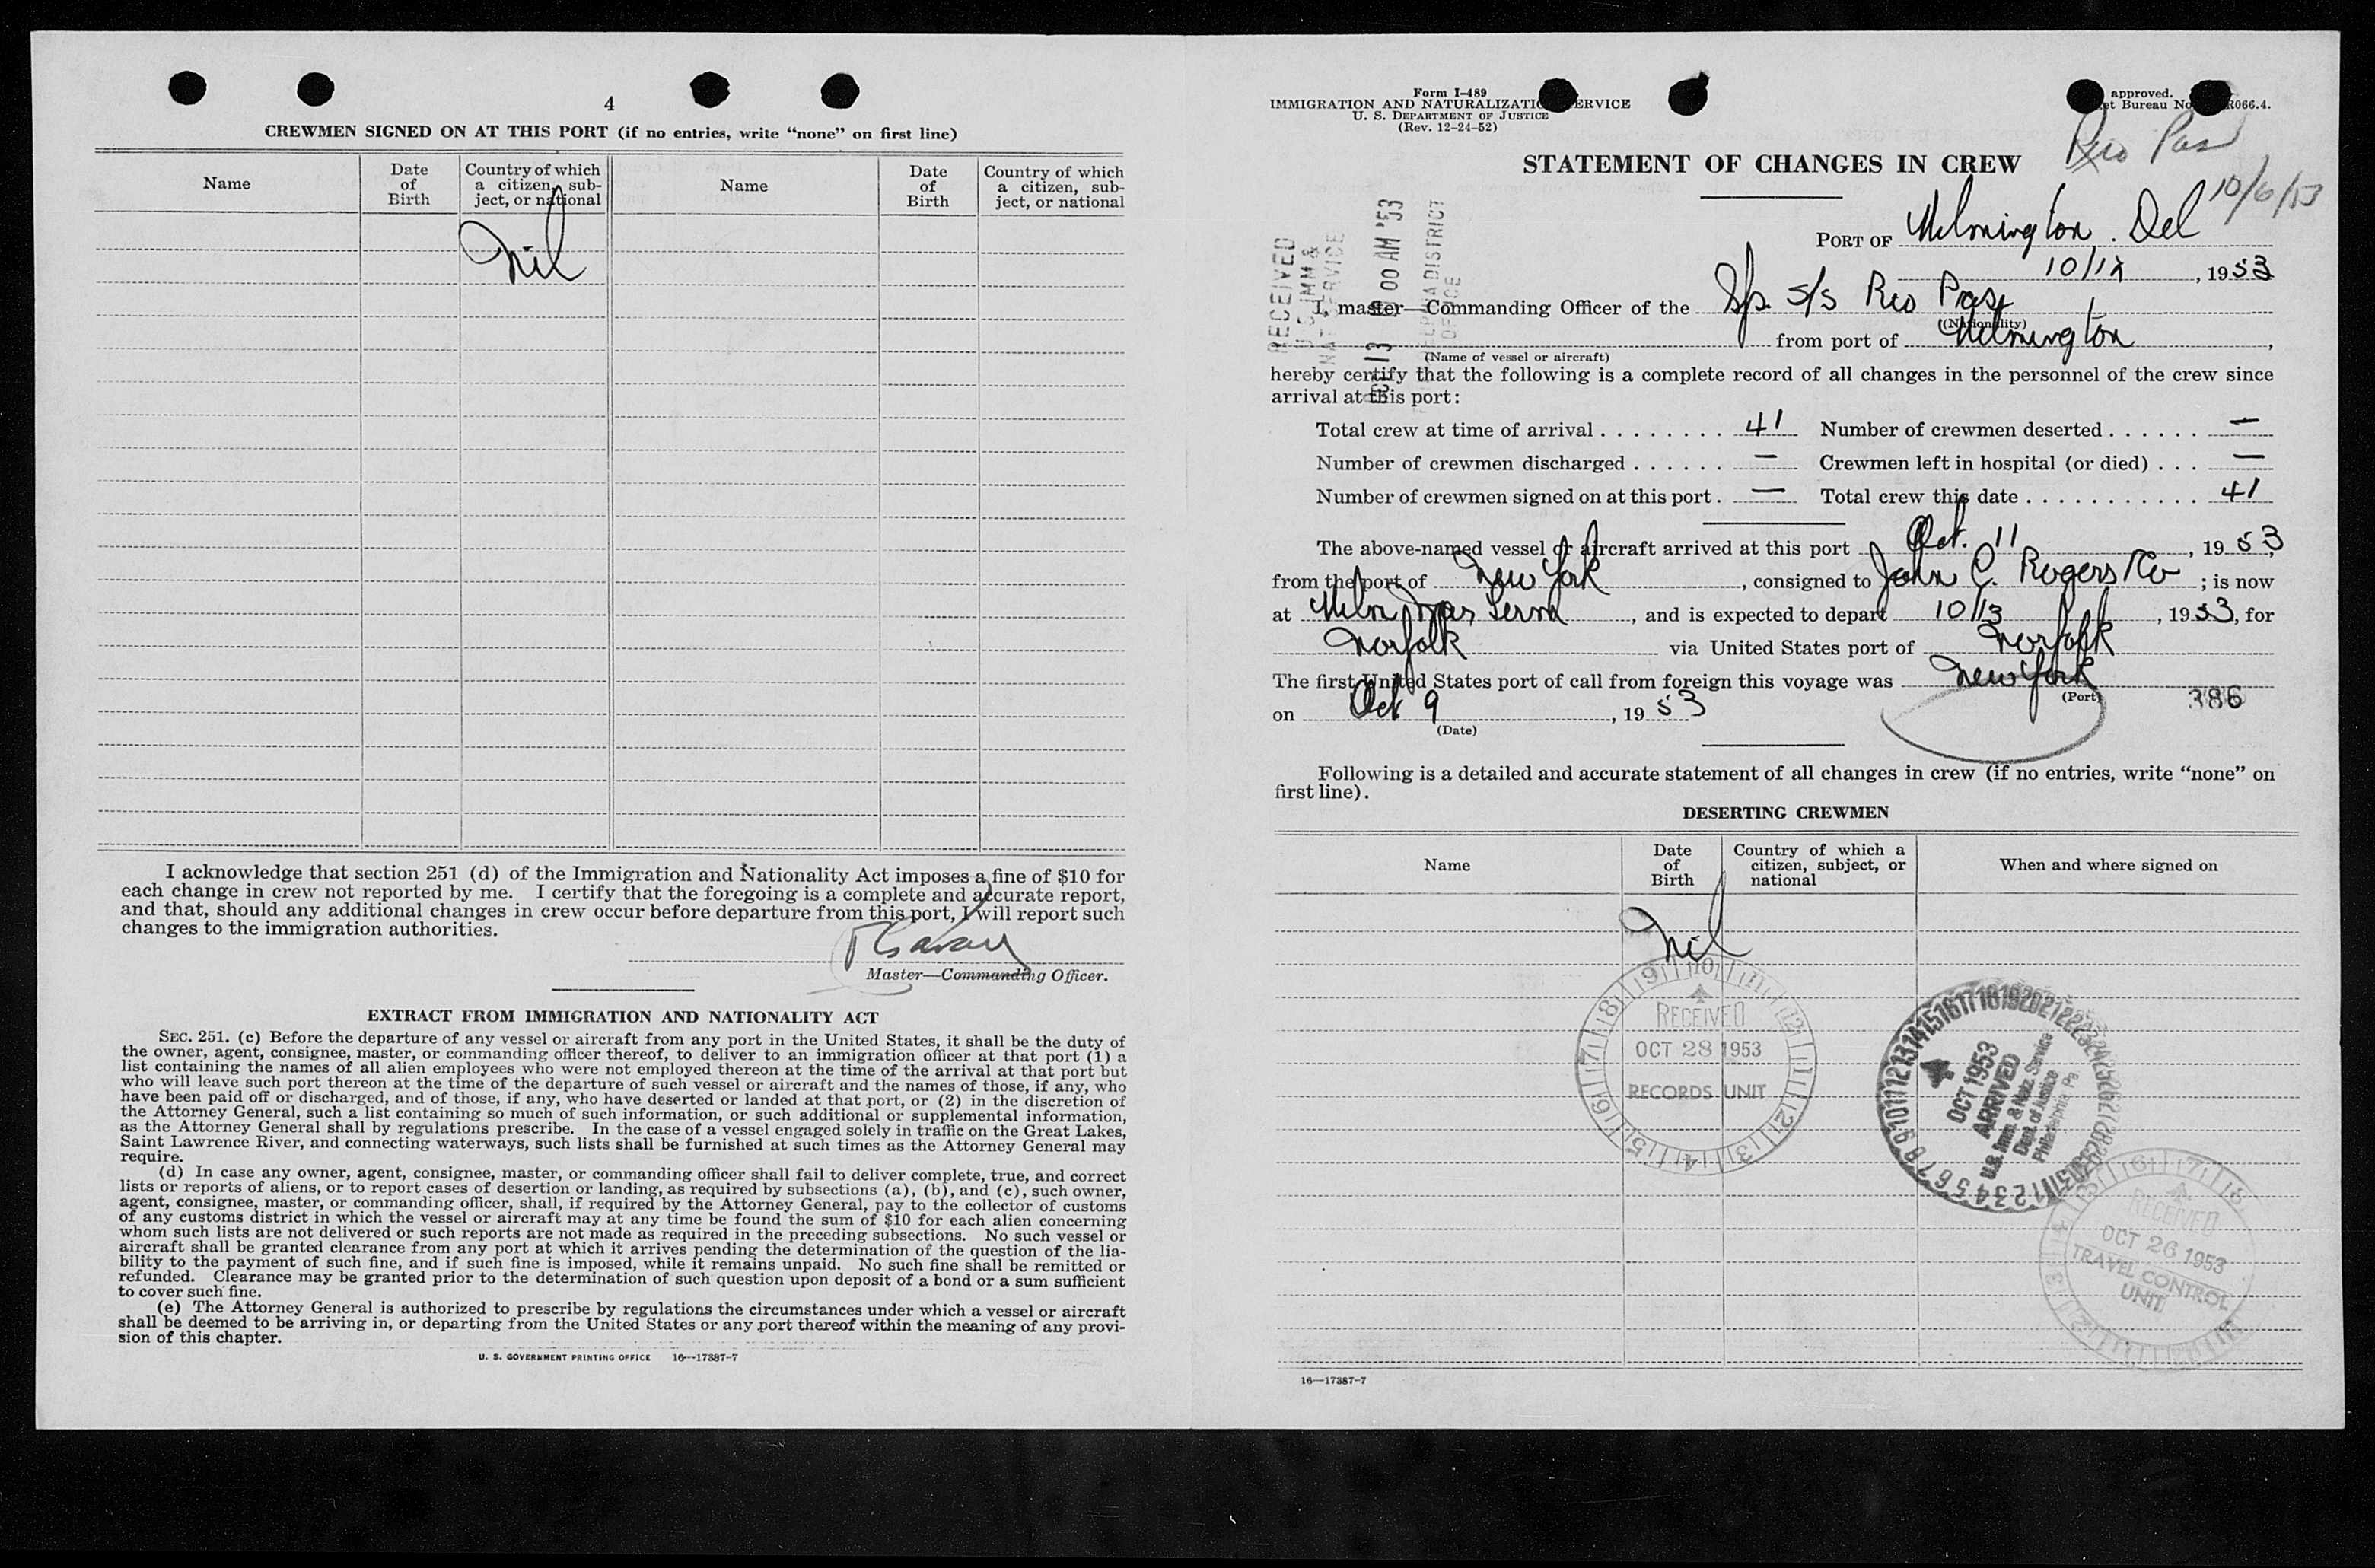 4
CREWMEN SIGNED ON AT THIS PORT (if no entries, write “none” on first line)
Name
Date of Birth
Country of which a citizen, subject, or national
Name
Date of Birth
Country of which a citizen, subject, or national
Nil
I acknowledge that section 251 (d) of the Immigration and Nationality Act imposes a fine of $10 for
each change in crew not reported by me. I certify that the foregoing is a complete and accurate report,
and that, should any additional changes in crew occur before departure from this port, I will report such
changes to the immigration authorities.
Master—Commanding Officer.
EXTRACT FROM IMMIGRATION AND NATIONALITY ACT
SEC. 251. (c) Before the departure of any vessel or aircraft from any port in the United States, it shall be the duty of
the owner, agent, consignee, master, or commanding officer thereof, to deliver to an immigration officer at that port (1) a
list containing the names of all alien employees who were not employed thereon at the time of the arrival at that port but
who will leave such port thereon at the time of the departure of such vessel or aircraft and the names of those, if any, who
have been paid off or discharged, and of those, if any, who have deserted or landed at that port, or (2) in the discretion of
the Attorney General, such a list containing so much of such information, or such additional or supplemental information,
as the Attorney General shall by regulations prescribe. In the case of a vessel engaged solely in traffic on the Great Lakes,
Saint Lawrence River, and connecting waterways, such lists shall be furnished at such times as the Attorney General may
require.
(d) In case any owner, agent, consignee, master, or commanding officer shall fail to deliver complete, true, and correct
lists or reports of aliens, or to report cases of desertion or landing, as required by subsections (a), (b), and (c), such owner,
agent, consignee, master, or commanding officer, shall, if required by the Attorney General, pay to the collector of customs
of any customs district in which the vessel or aircraft may at any time be found the sum of $10 for each alien concerning
whom such lists are not delivered or such reports are not made as required in the preceding subsections. No such vessel or
aircraft shall be granted clearance from any port at which it arrives pending the determination of the question of the lia-
bility to the payment of such fine, and if such fine is imposed, while it remains unpaid. No such fine shall be remitted or
refunded. Clearance may be granted prior to the determination of such question upon deposit of a bond or a sum sufficient
to cover such fine.
(e) The Attorney General is authorized to prescribe by regulations the circumstances under which a vessel or aircraft
shall be deemed to be arriving in, or departing from the United States or any port thereof within the meaning of any provi-
sion of this chapter.
U. S. GOVERNMENT PRINTING OFFICE 16—17387-7
Form I-489
IMMIGRATION AND NATURALIZATION SERVICE
U. S. DEPARTMENT OF JUSTICE
(Rev. 12-24-52)
approved.
et Bureau No. R066.4.
Rio Pas
10/6/53
STATEMENT OF CHANGES IN CREW
PORT OF Wilmington, Del
10/12, 1953
I, master—Commanding Officer of the S/s Rio
(Nationality)
from port of Wilmington,
(Name of vessel or aircraft)
hereby certify that the following is a complete record of all changes in the personnel of the crew since
arrival at this port:
Total crew at time of arrival ........ 41 Number of crewmen deserted ...... —
Number of crewmen discharged ...... — Crewmen left in hospital (or died) ... —
Number of crewmen signed on at this port . — Total crew this date ........... 41
The above-named vessel or aircraft arrived at this port Oct. 11, 1953,
from the port of New York, consigned to John C. Rogers Co; is now
at Wilm Mar Term, and is expected to depart 10/13, 1953, for
Norfolk via United States port of Norfolk
The first United States port of call from foreign this voyage was New York
(Port)
386
on Oct 9, 1953
(Date)
Following is a detailed and accurate statement of all changes in crew (if no entries, write “none” on
first line).
DESERTING CREWMEN
Name
Date of Birth
Country of which a citizen, subject, or national
When and where signed on
Nil
RECEIVED
OCT 28 1953
RECORDS UNIT
OCT 1953
ARRIVED
U.S. Imm. & Natz. Service
Dept. of Justice
Philadelphia Pa
RECEIVED
OCT 26 1953
TRAVEL CONTROL
UNIT
16—17387-7